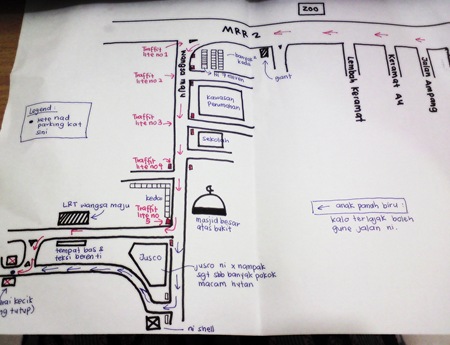 ZOO
MRR 2
Wangsa Maju
Traffic
lite no 1
Traffic
lite no 2
Traffic
lite no 3
Traffic
lite no 4
Traffic
lite no
5
banyak
kedai
giant
Lembah Keramat
Keramat AU
Jalan Ampang
Legend:
kete nad
parking kat
sini
Kawasan
Perumahan
sekolah
kedai
LRT wangsa maju
masjid besar
atas bukit
tempat bas &
teksi berenti
Jusco
jusco ni x nampak
sgt sbb banyak pokok
macam hutan
ni shell
anak panah biru:
kalo terlajak boleh
gune jalan ni.
kecik
tutup)